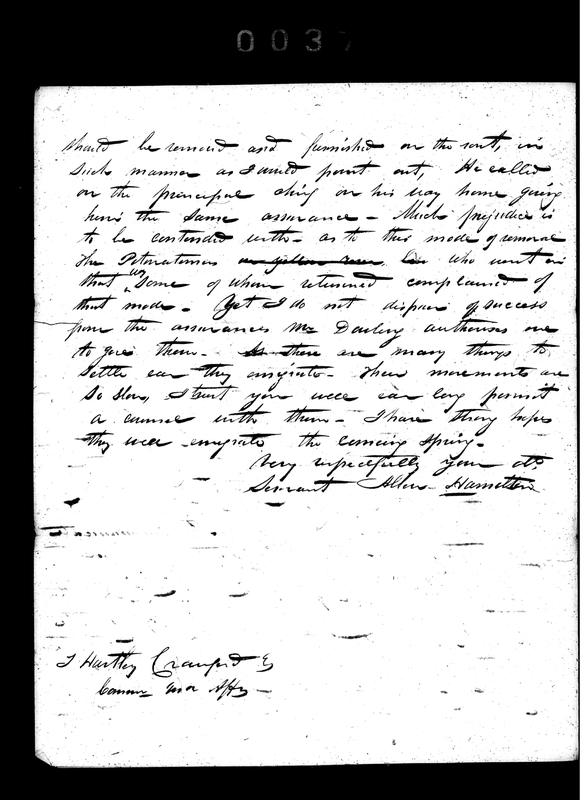 0037
should be removed and furnished on the rout, in
such manner as I would point out, He called
on the principal chief on his way home giving
him the same assurance - Much prejudice is
to be contended with - as to this mode of removal
The Potawatamies who went in
that way some of whom returned complained of
that mode - Yet I do not dispair of success
from the assurances Mr Dowling authorises me
to give them - are many things to
settle ear they emigrate - Their movements are
so slow, I trust you will ear long permit
a council with them - I have strong hopes
they will emigrate the comeing spring -
Very respectfully your obt
Servant Allen Hamilton
T Hartley Crawford Esq
Comm Ind Affrs -